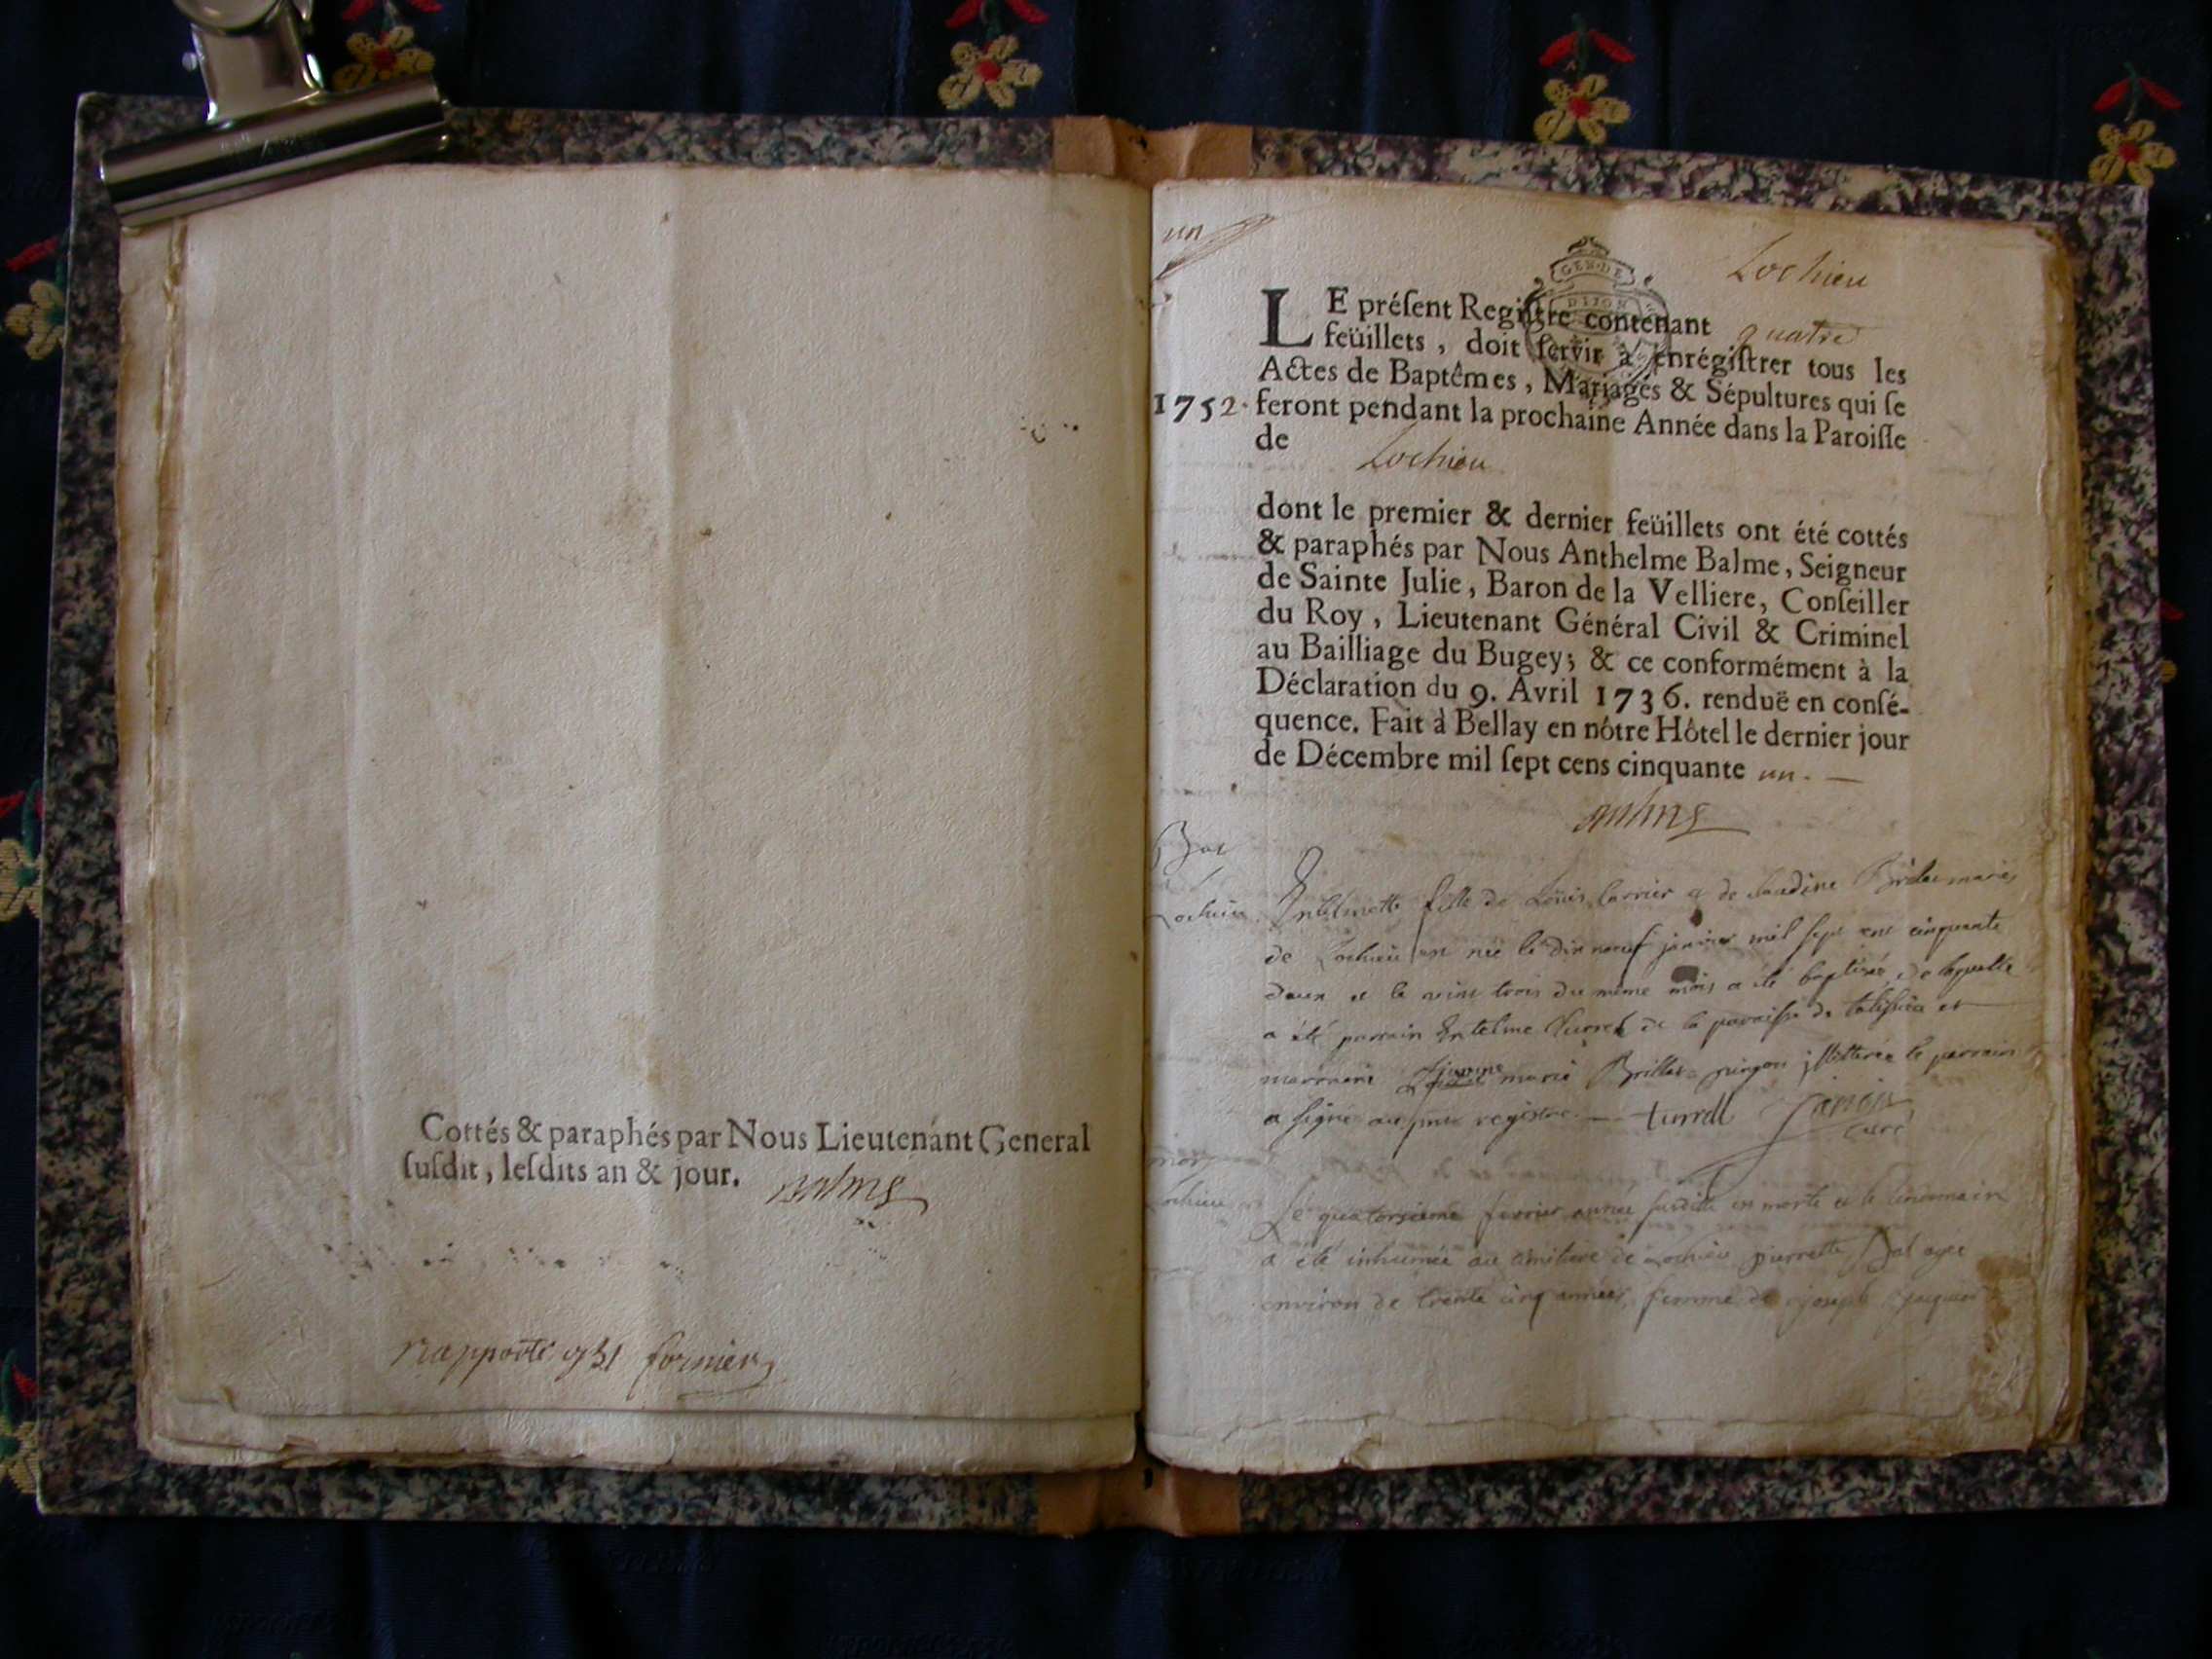 Cottés & paraphés par Nous Lieutenant General
ſuſdit, leſdits an & jour. Balme
rapporté 1751 fornier
un
Lochieu
GEN·DE
DIJON
LE préſent Regiſtre contenant quatre
feüillets, doit ſervir à enrégiſtrer tous les
Actes de Baptêmes, Mariages & Sépultures qui ſe
1752. feront pendant la prochaine Année dans la Paroiſſe
de Lochieu
dont le premier & dernier feüillets ont été cottés
& paraphés par Nous Anthelme Balme, Seigneur
de Sainte Julie, Baron de la Velliere, Conſeiller
du Roy, Lieutenant Général Civil & Criminel
au Bailliage du Bugey; & ce conformément à la
Déclaration du 9. Avril 1736. renduë en conſé-
quence. Fait à Bellay en nôtre Hôtel le dernier jour
de Décembre mil ſept cens cinquante un.
Balme
Bat
Lochieu Entelmette fille de Louis Carrier et de Claudine mariés
de Lochieu est née le dix neuf janvier mil sept cent cinquante
deux et le vint trois du même mois a été baptisée, de laquelle
a été parrain Entelme Turrel de la paroisse de Talissieu et
marraine marie Brillat illitterée le parrain
a signé au registre turrell Janoii
curé
mor
Lochieu Le quatorsieme fevrier année susditte est morte et le lendemain
a été inhumée au cimitiere de Lochieu pierrette agee
environ de trente cinq années, femme de joseph